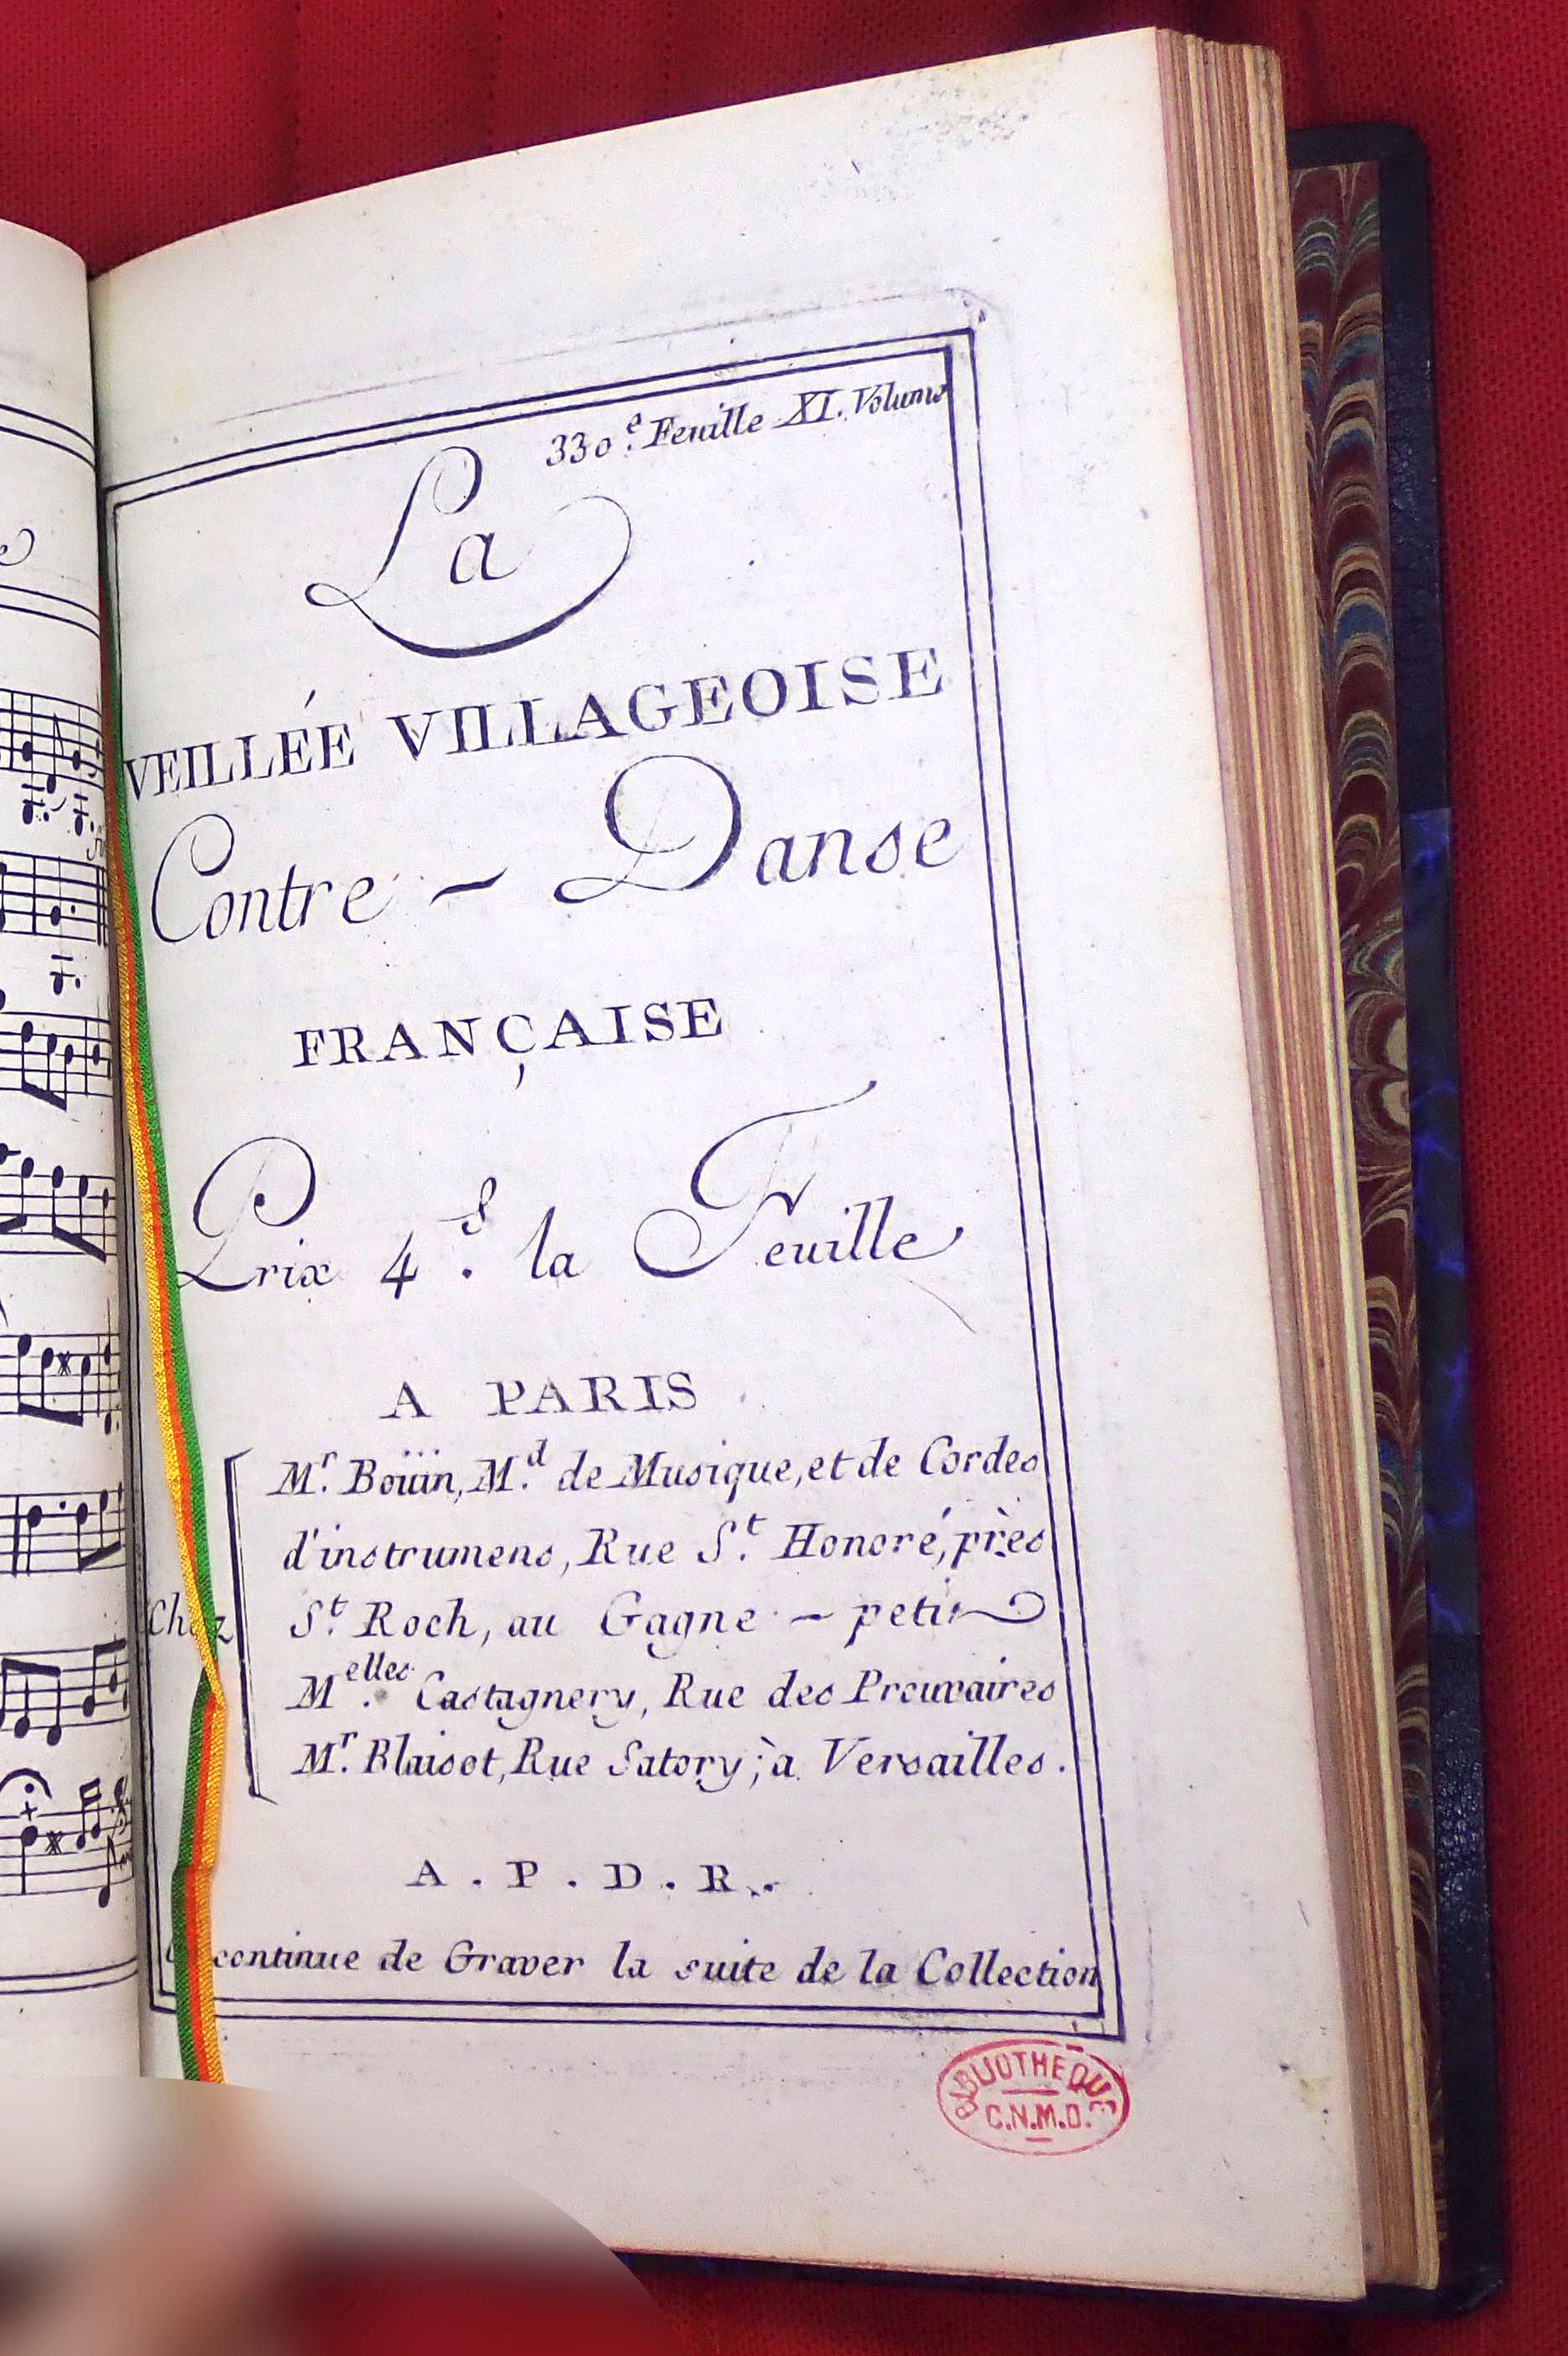 330.e Feuille XI. Volume
La
VEILLÉE VILLAGEOISE
Contre - Danse
FRANÇAISE
Prix 4.s la Feuille
A PARIS
Chez
M.r Boüin, M.d de Musique, et de Cordes
d'instrumens, Rue S.t Honoré, près
S.t Roch, au Gagne - petit
M.elles Castagnery, Rue des Prouvaires
M.r Blaisot, Rue Satory, à Versailles.
A. P. D. R.
continue de Graver la suite de la Collection
BIBLIOTHÈQUE
C.N.M.D.